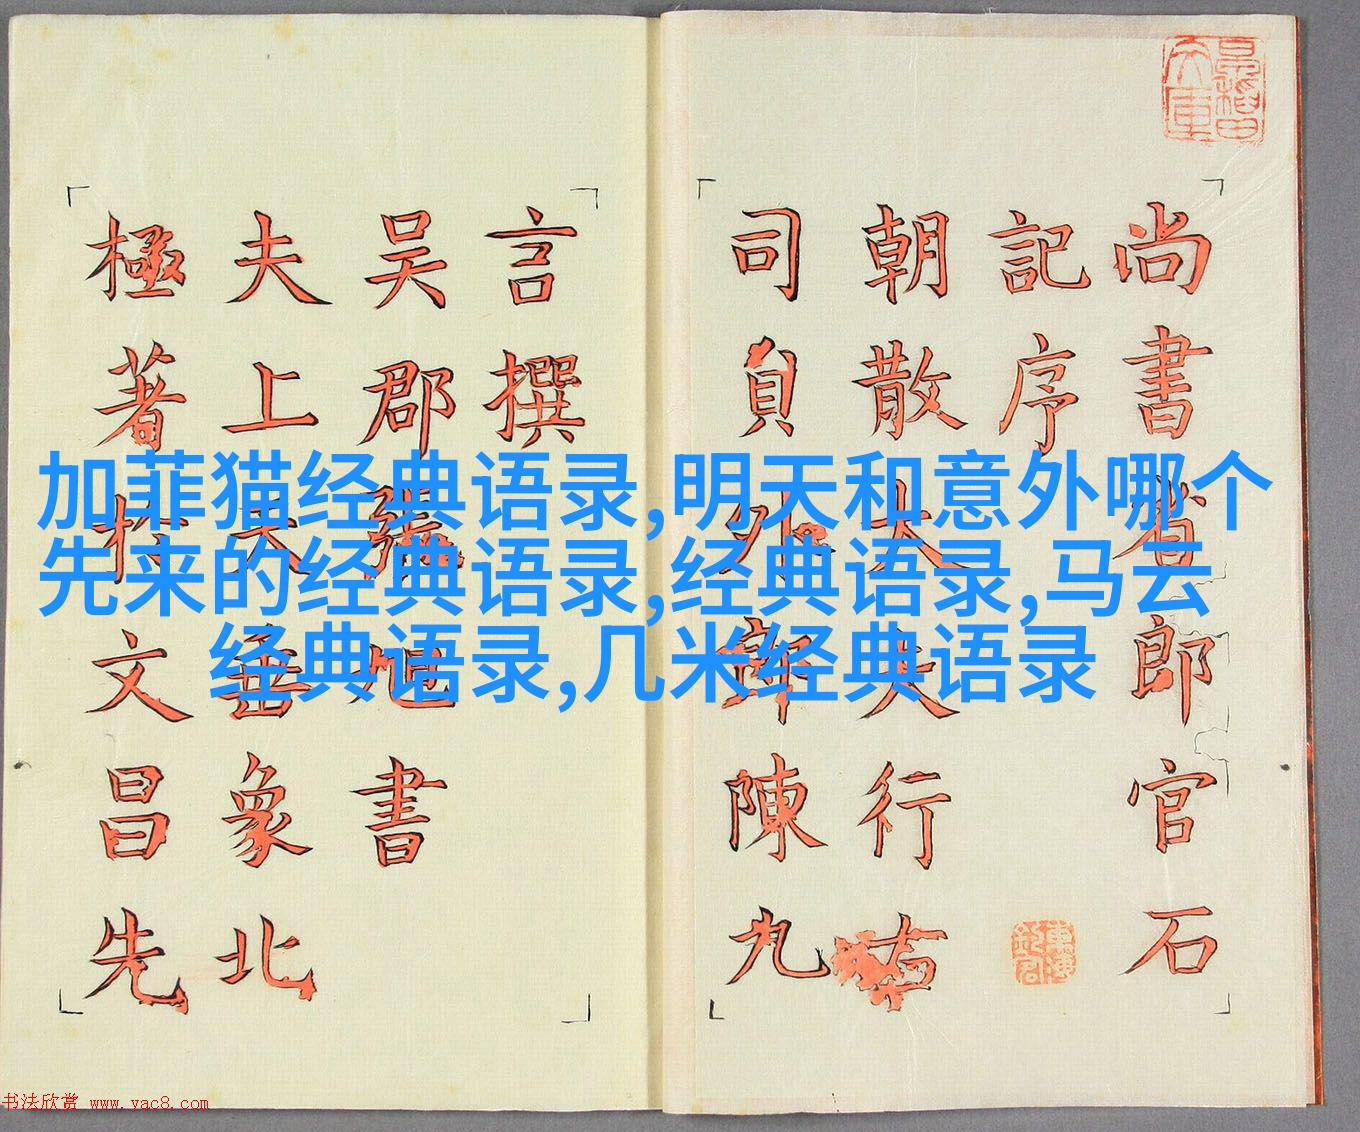 尚書省郎官石
記序
朝散大夫行右
司員外郎陳九
言撰
吴郡張旭書
夫上天垂象北
極著於文昌先
加菲猫经典语录,明天和意外哪个
先来的经典语录,经典语录,马云
经典语录,几米经典语录
书法欣赏 www.yac8.com